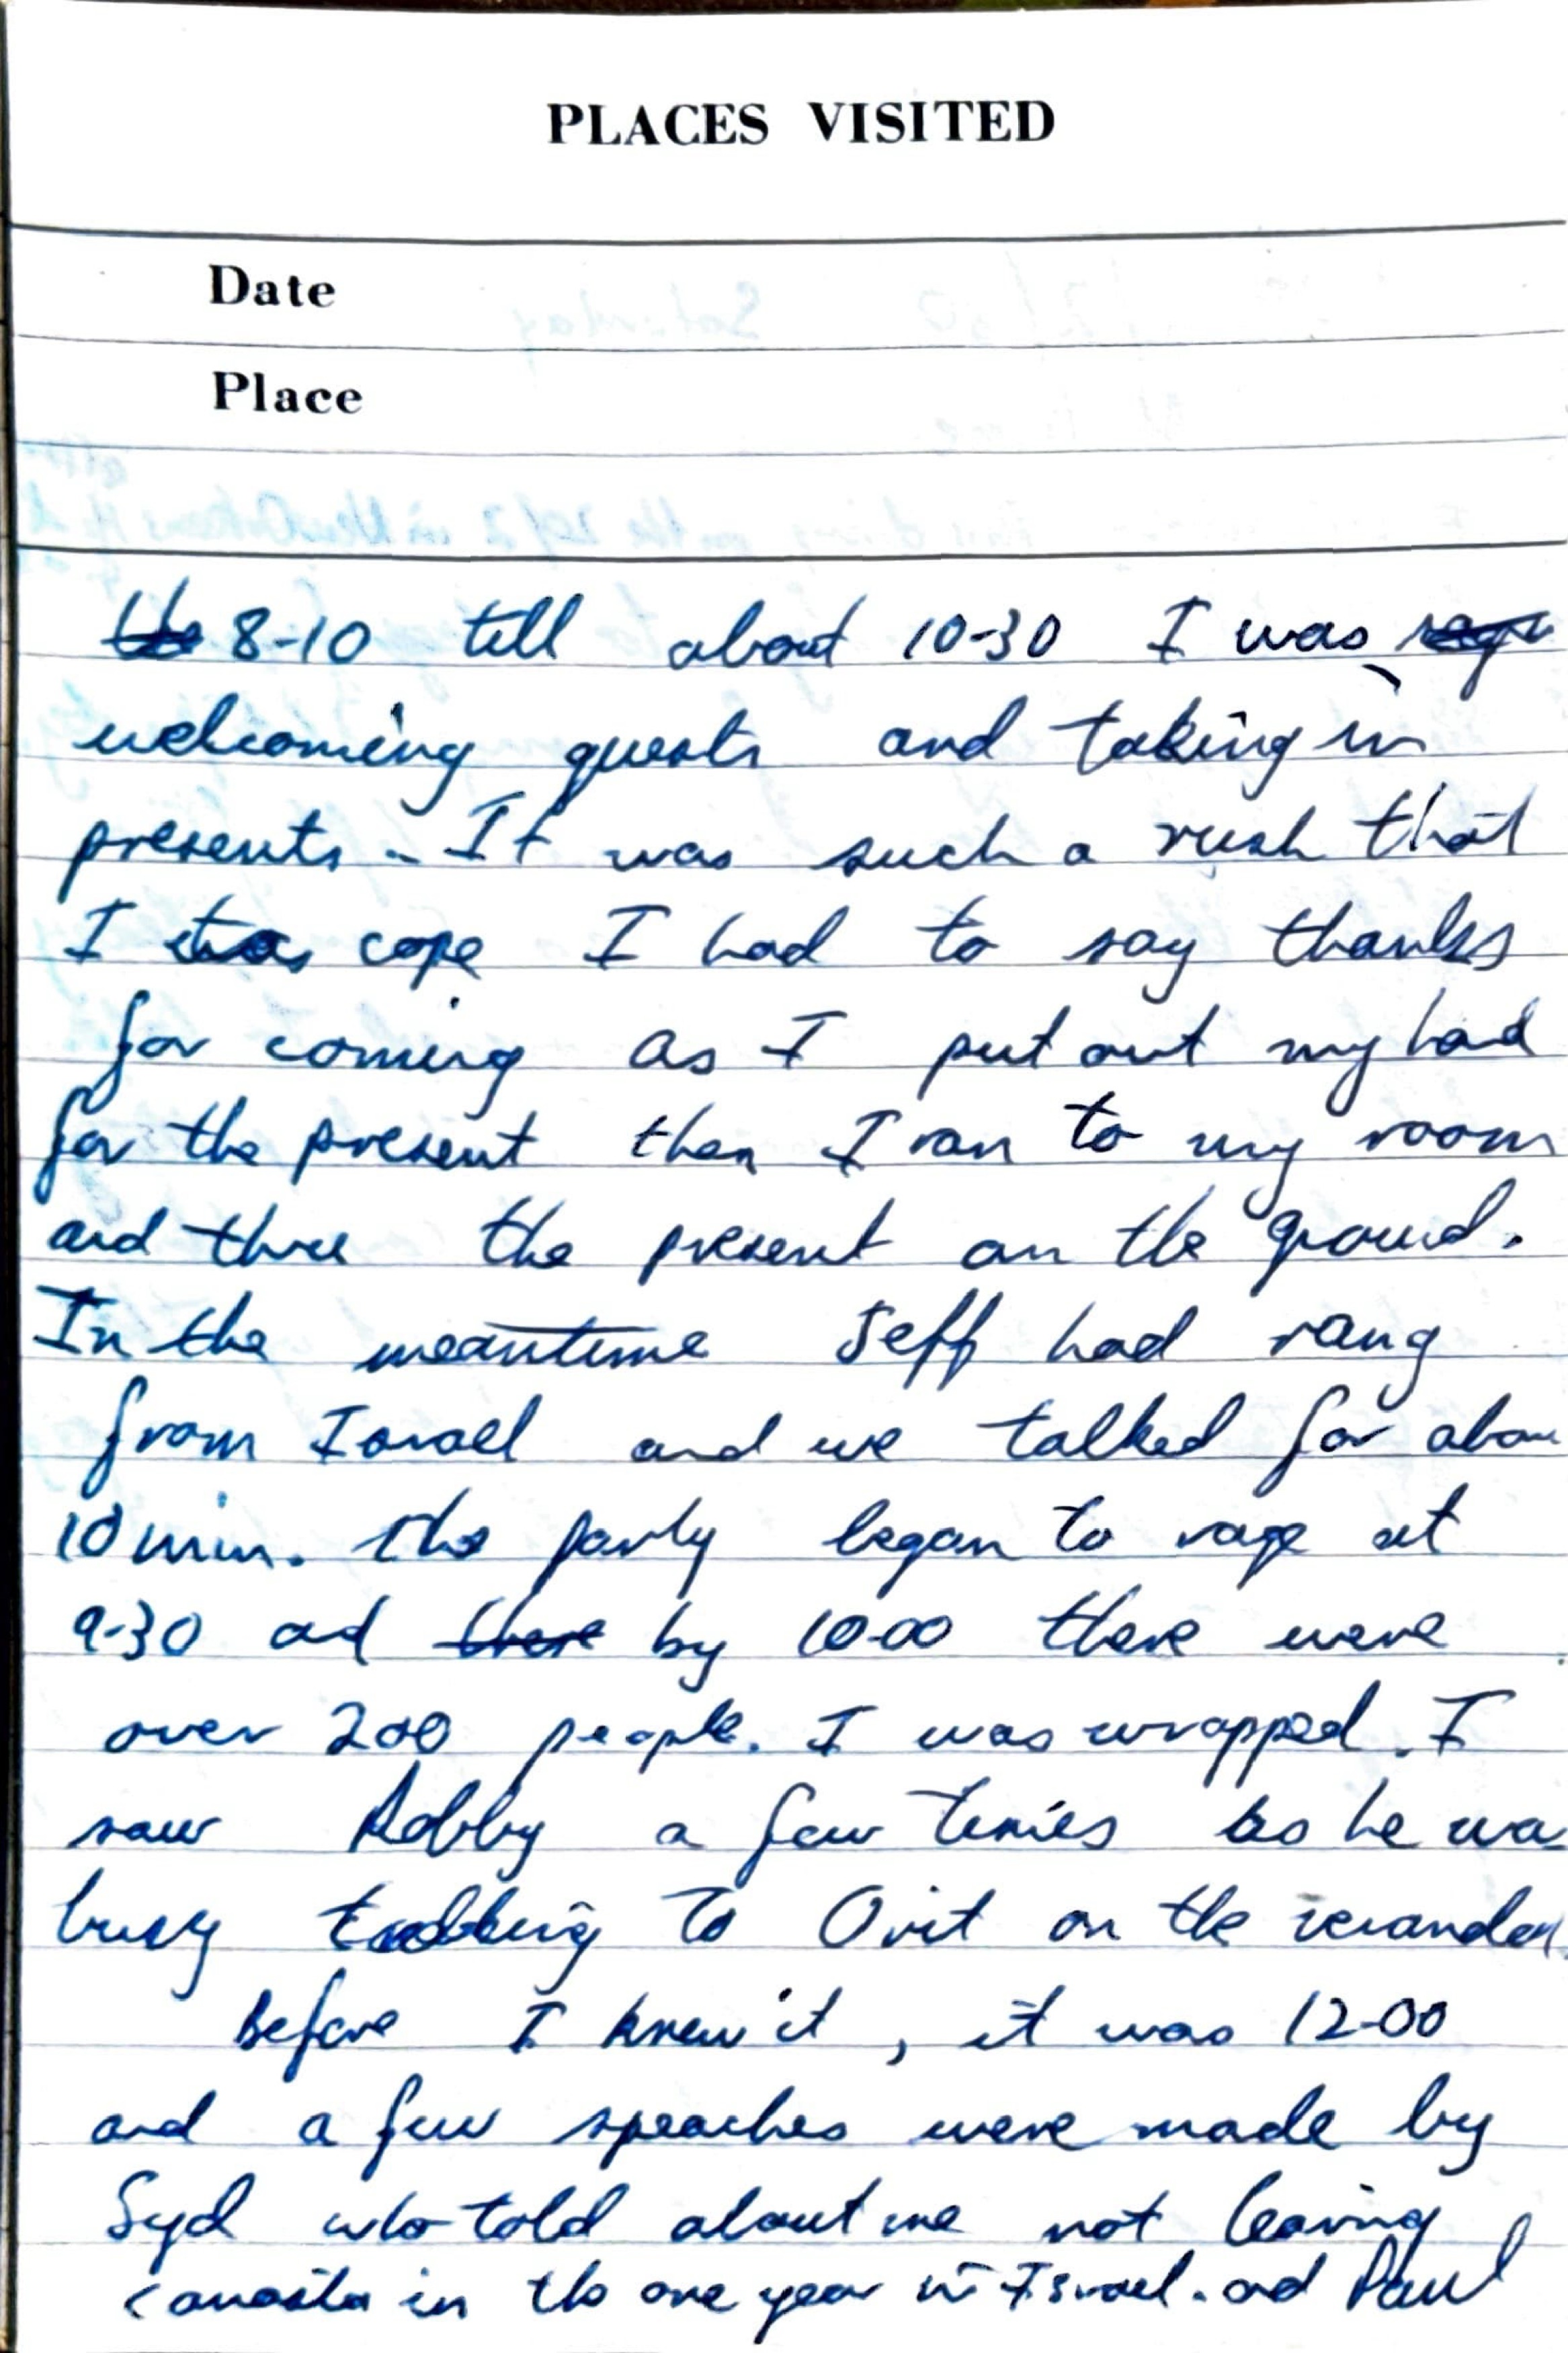 PLACES VISITED
Date
Place
8-10 till about 10-30 I was
welcoming guests and taking in
presents - It was such a rush that
I cope I had to say thanks
for coming as I put out my had
for the present then I ran to my room
and threw the present on the ground.
In the meantime Jeff had rang
from Israel and we talked for abou
10 min. The party began to rage at
9-30 ad there by 10-00 there were
over 200 people. I was wrapped. I
saw Robby a few times as he wa
busy talking to Orit on the verandah
Before I knew it, it was 12-00
and a few speaches were made by
Syd who told about me not leaving
in the one year in Israel. ad Paul